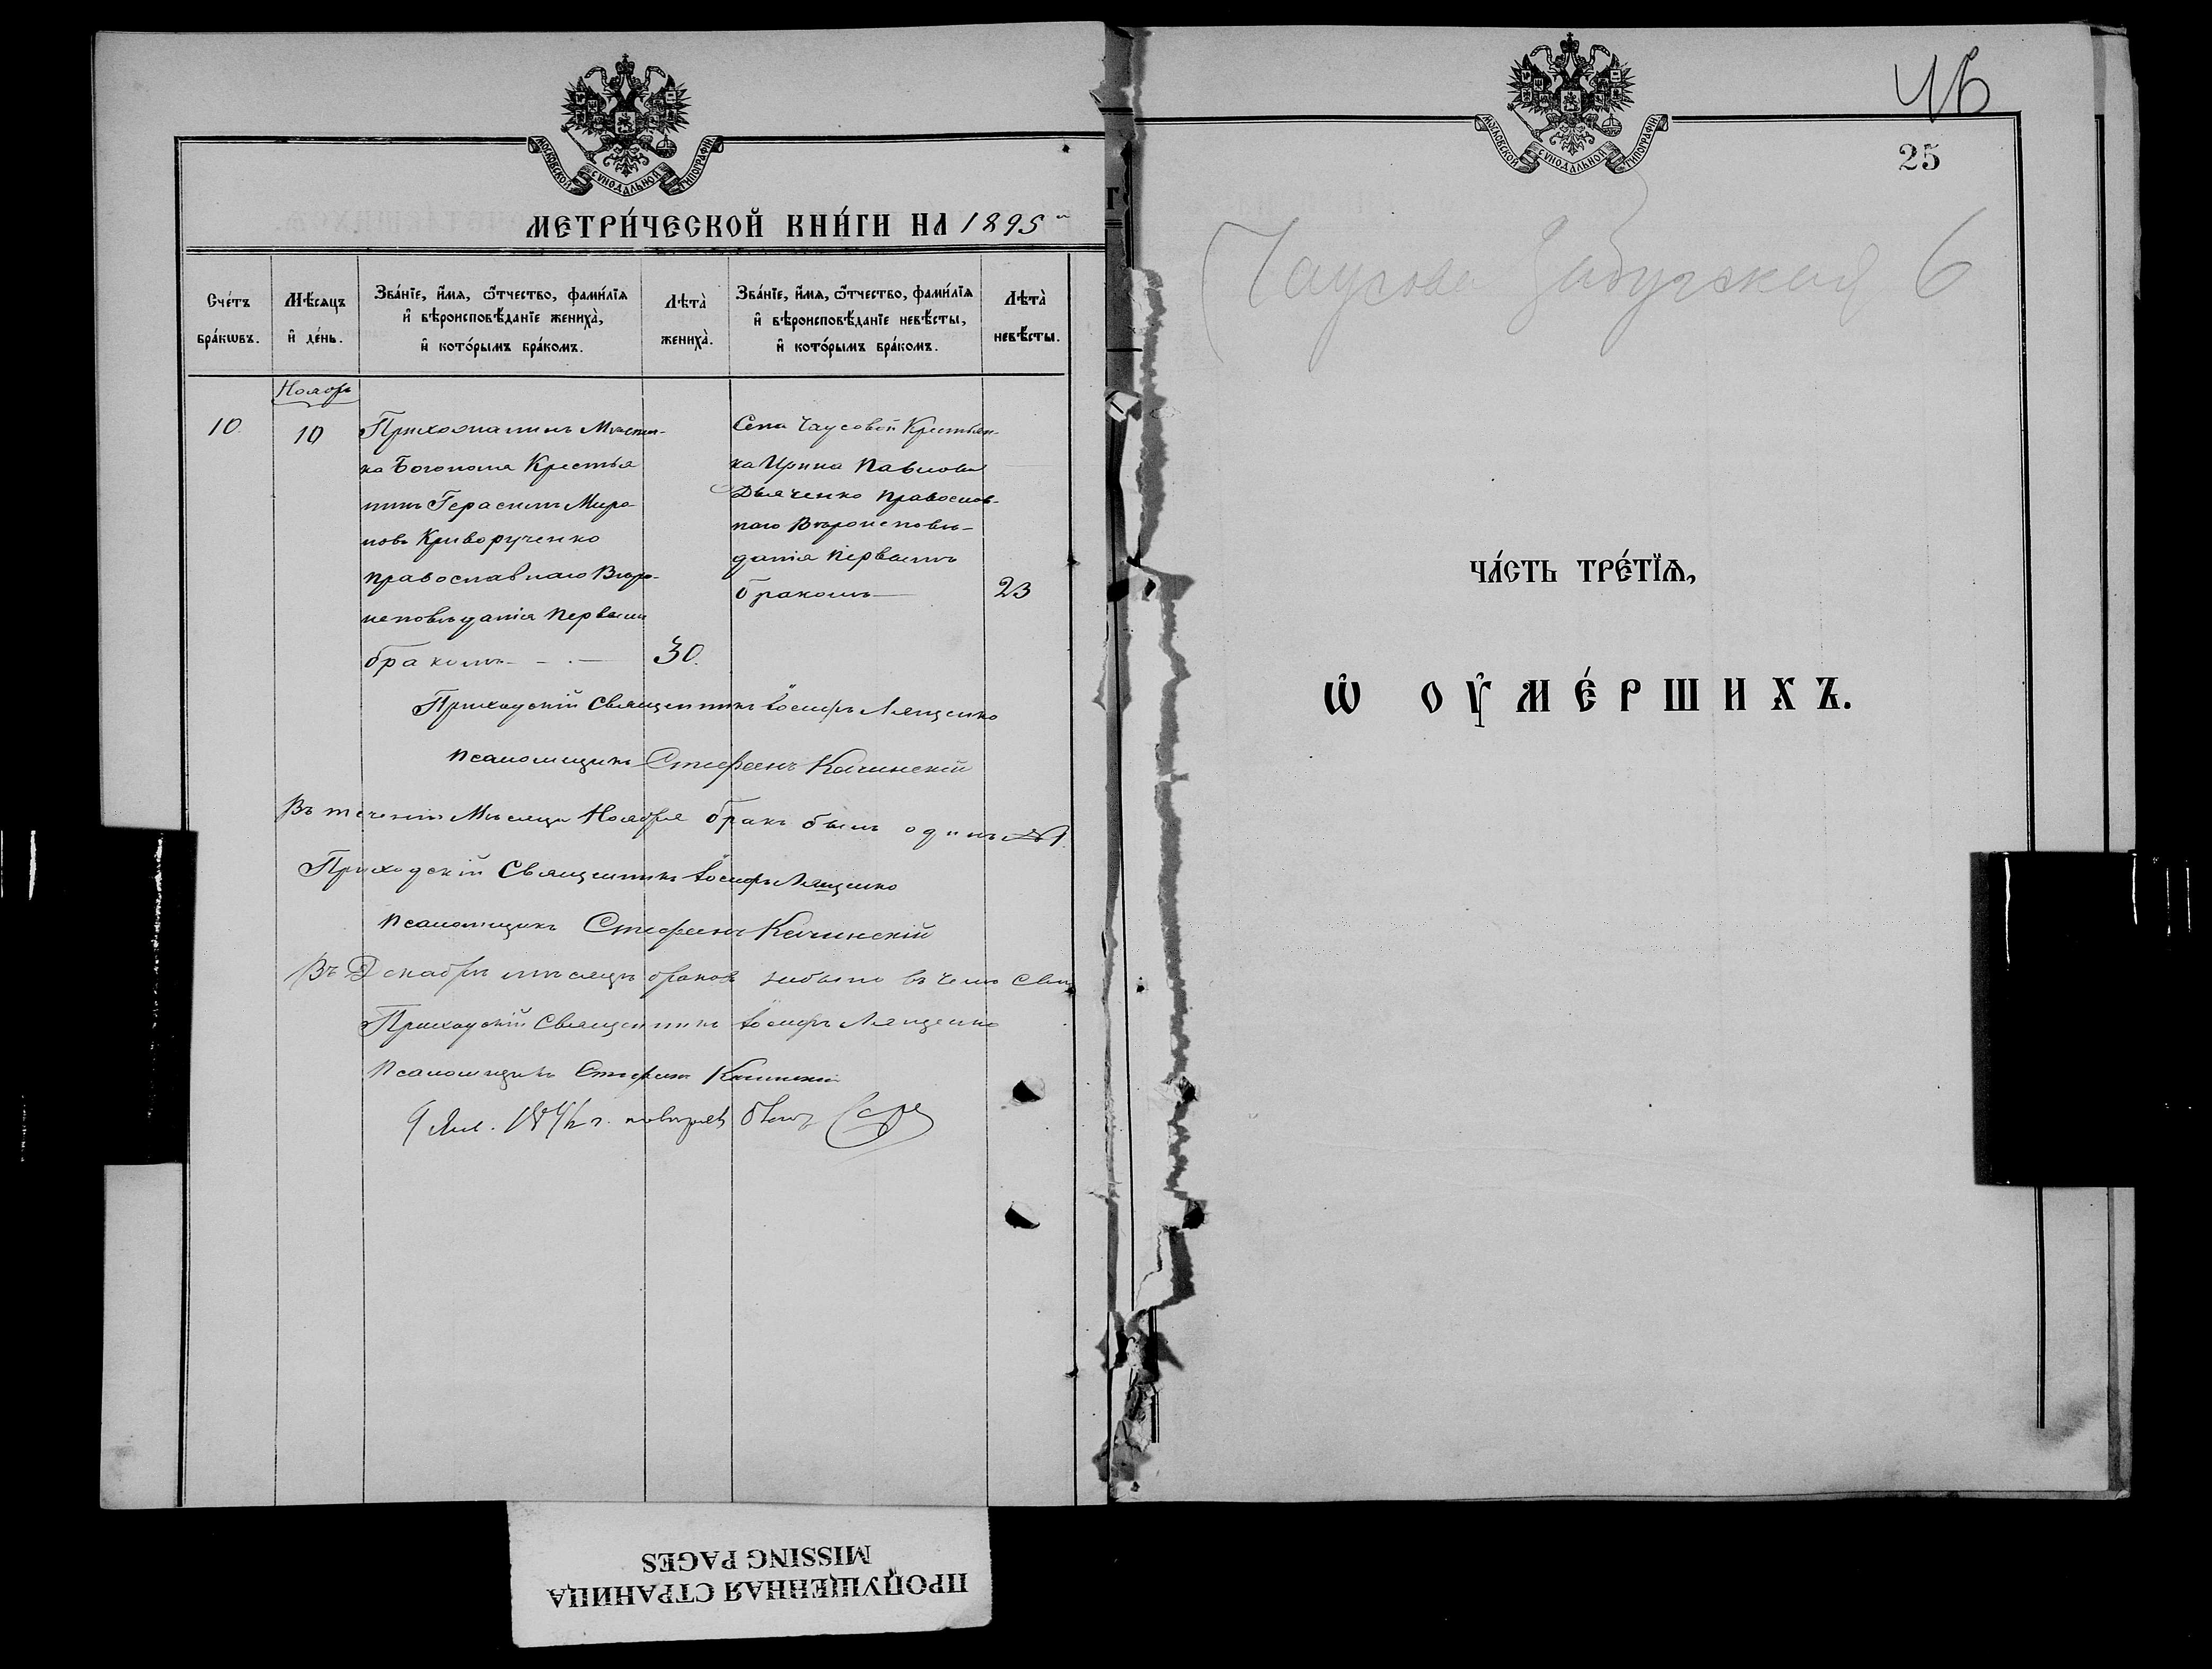 МОСКОВСКОЙ СУНОДАЛЬНОЙ ТИПОГРАФІИ
МЕТРИ́ЧЕСКОЙ КНИ́ГИ НА 1895
Сче́тъ бра́кωвъ.
Мѣ́сяцъ и҆ де́нь.
Зва́нїе, и҆́мя, ѻ҆́тчество, фами́лїя и҆ вѣроисповѣ́данїе жениха̀, и҆ кото́рымъ бра́комъ.
Лѣта̀ жениха̀.
Зва́нїе, и҆́мя, ѻ҆́тчество, фами́лїя и҆ вѣроисповѣ́данїе невѣ́сты, и҆ кото́рымъ бра́комъ.
Лѣта̀ невѣ́сты.
Ноябрь
10.
10
Прихожанинъ Мѣстеч-
ка Богополя Крестья
нинъ Герасимъ Миро
новъ Криворученко
православнаго Вѣро-
исповѣданія первымъ
бракомъ
30.
Села Чаусовой Крестьян-
ка Ирина Павлова
Дьяченко православ-
наго Вѣроисповѣ-
данія первымъ
бракомъ
23
Приходскій Священникъ Іосифъ Лященко
Псаломщикъ Стефанъ Качинскій
Въ теченіи Мѣсяца Ноября бракъ былъ одинъ №1.
Приходскій Священникъ Іосифъ Лященко
Псаломщикъ Стефанъ Качинскій
Въ Декабрѣ мѣсяцѣ браковъ небыло въ чемъ
Приходскій Священникъ Іосифъ Лященко
Псаломщикъ Стефанъ Качинскій
9
МОСКОВСКОЙ СУНОДАЛЬНОЙ ТИПОГРАФІИ
46
25
Чаусова Забугская 6
ЧА́СТЬ ТРЕ́ТЇѦ,
Ѽ ОУ҆МЕ́РШИХЪ.
ПРОПУЩЕННАЯ СТРАНИЦА
MISSING PAGES